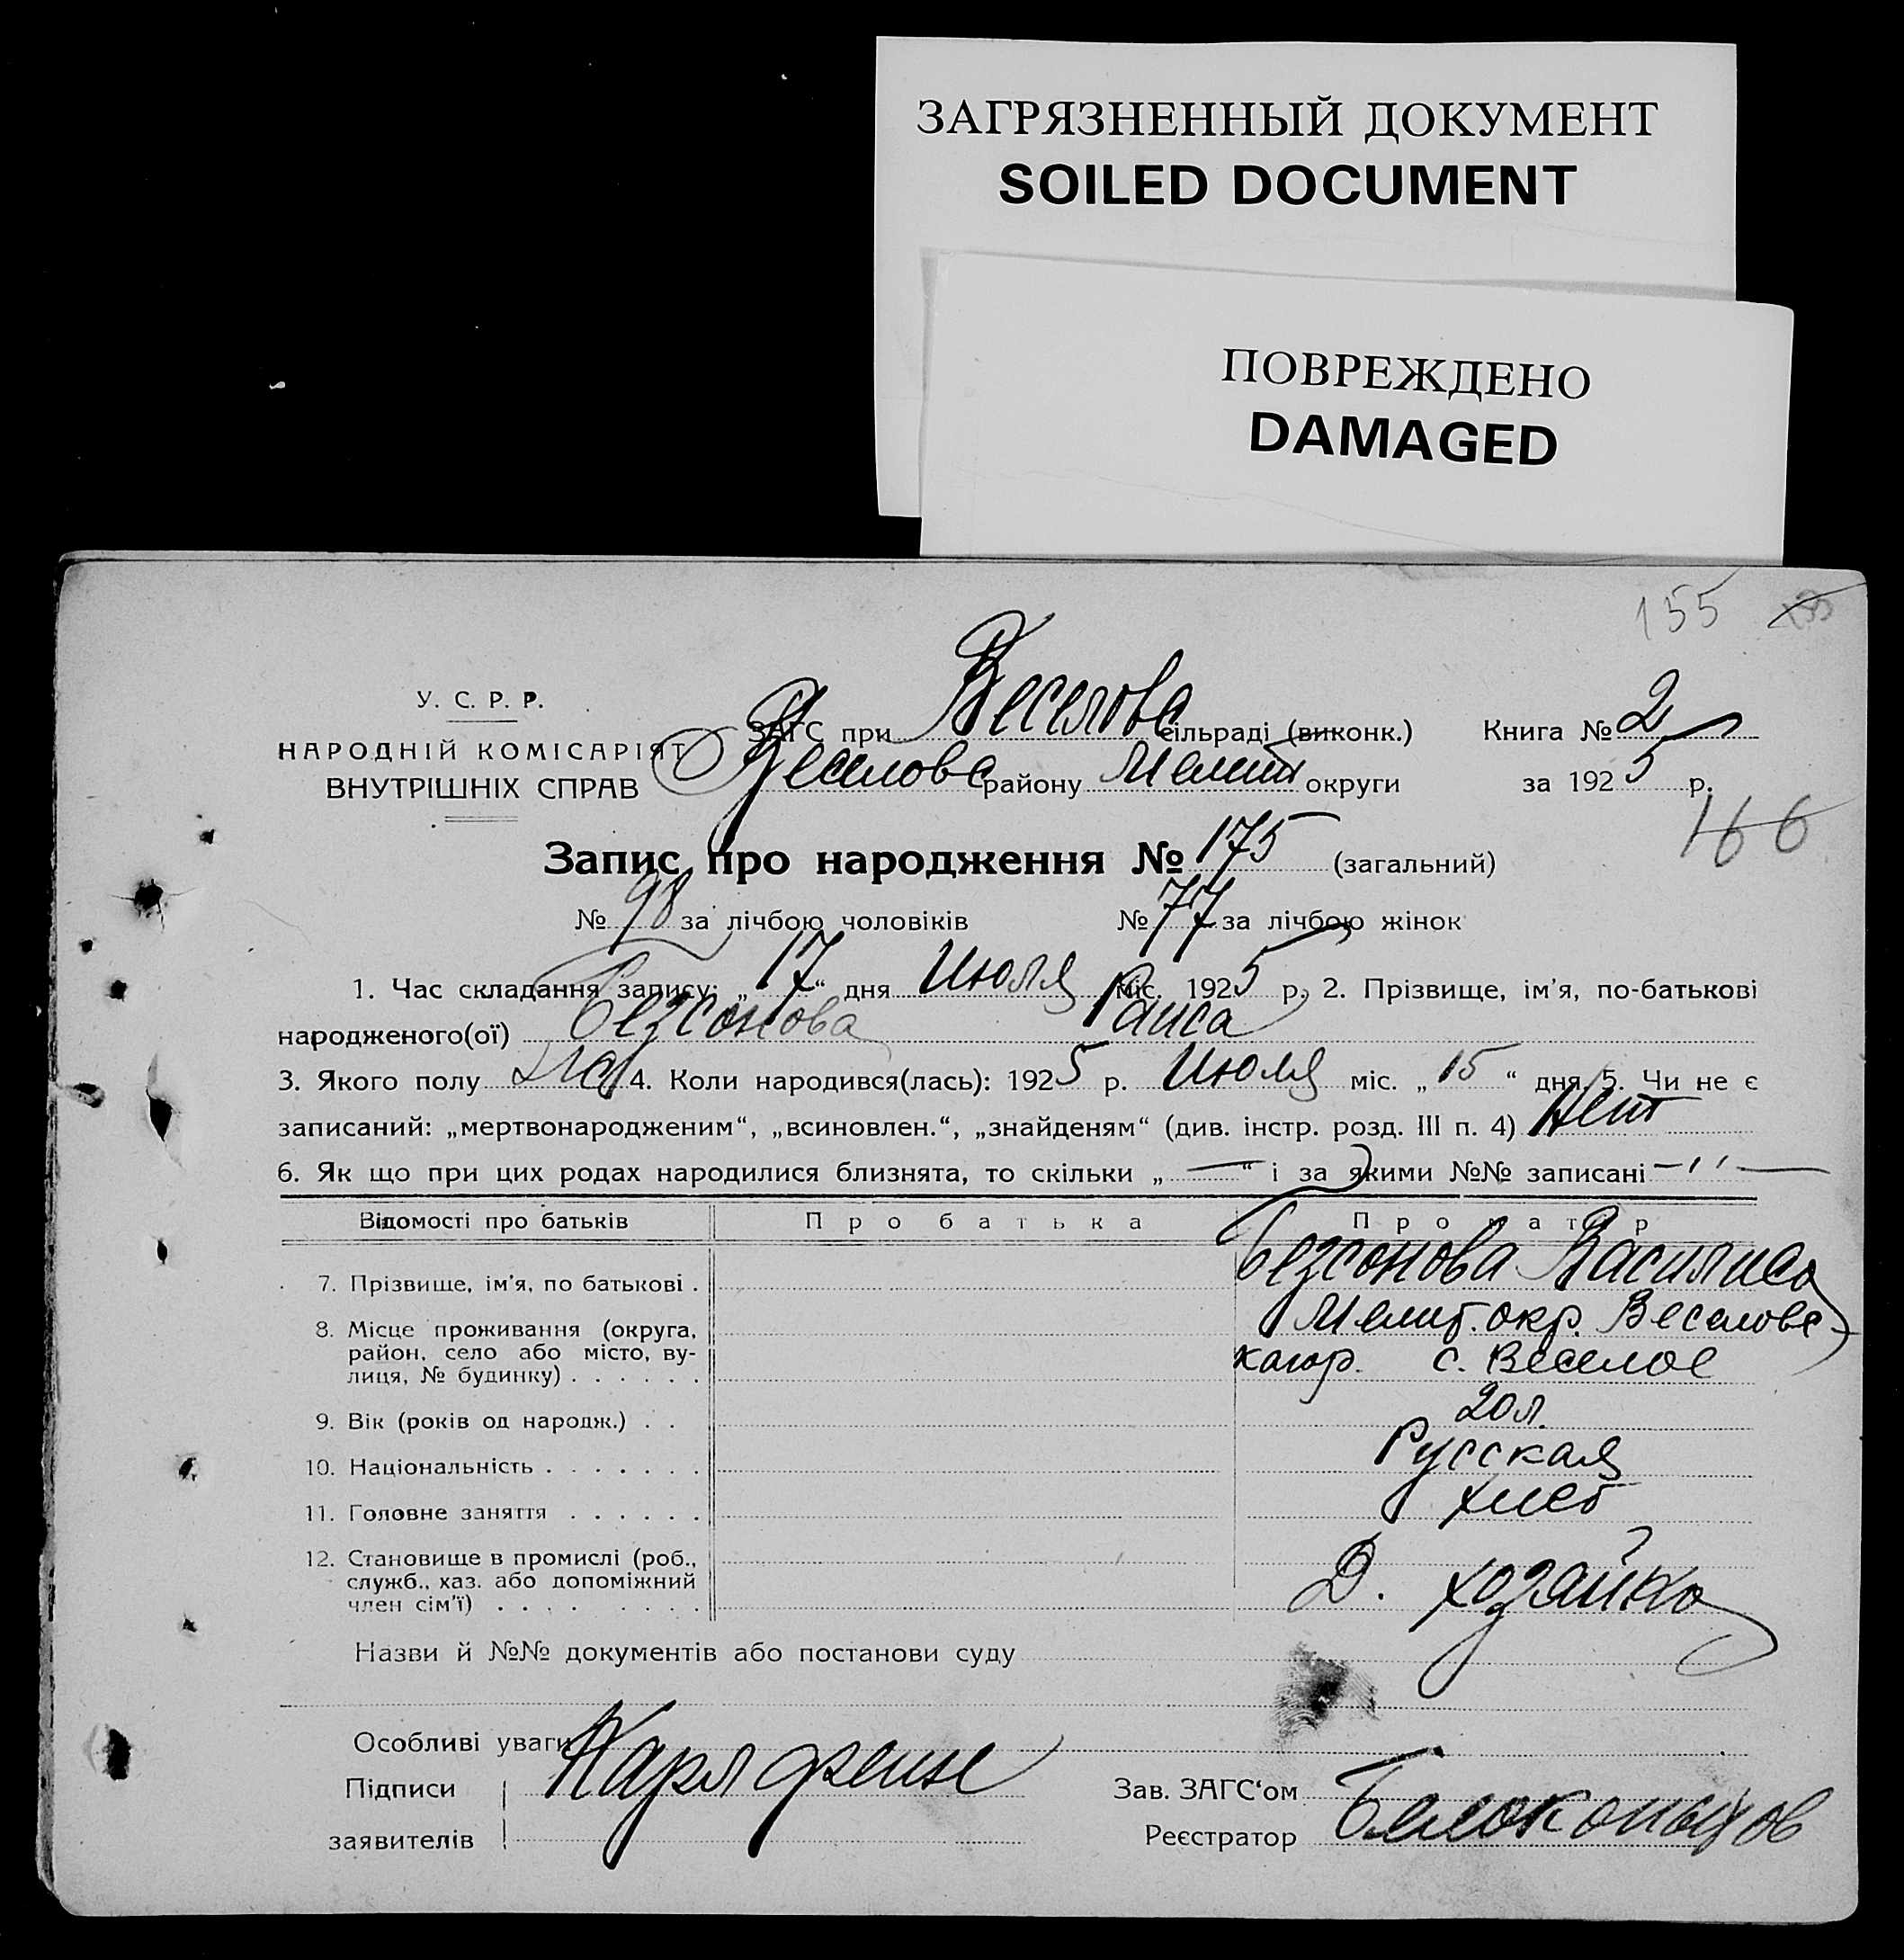 ЗАГРЯЗНЕННЫЙ ДОКУМЕНТ
SOILED DOCUMENT
ПОВРЕЖДЕНО
DAMAGED
155
У. С. Р. Р.
НАРОДНІЙ КОМІСАРІЯТ
ВНУТРІШНІХ СПРАВ
ЗАГС при Веселовс сільраді (виконк.) Книга № 2
Веселовс району Мелит округи за 1925 р.
166
Запис про народження № 175 (загальний)
№ 98 за лічбою чоловіків № 77 за лічбою жінок
1. Час складання запису: „17“ дня Июля міс. 1925 р. 2. Прізвище, ім'я, по-батькові
народженого(ої) Безсонова Раиса
3. Якого полу 4. Коли народився(лась): 1925 р. Июля міс. „15“ дня. 5. Чи не є
записаний: „мертвонародженим“, „всиновлен.“, „знайденям“ (див. інстр. розд. III п. 4) Нет
6. Як що при цих родах народилися близнята, то скільки „—“ і за якими №№ записані —〃—
Відомості про батьків Про батька Про матір
7. Прізвище, ім'я, по батькові . Безсонова Василиса
8. Місце проживання (округа, Мелит. окр. Веселовс
район, село або місто, ву- с. Веселое
лиця, № будинку) . . . . . .
9. Вік (років од народж.) . . 20 л.
10. Національність . . . . . . . Русская
11. Головне заняття . . . . . . хлеб
12. Становище в промислі (роб.,
служб., хаз. або допоміжний Д. хозяйка
член сім'ї) . . . . . . . .
Назви й №№ документів або постанови суду
Особливі уваги
Підписи Зав. ЗАГС'ом
заявителів Реєстратор Белоконьков